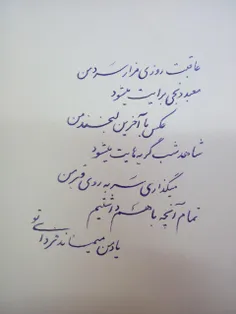 عاقبت روزی مزار سرد من
معبد دنجی برایت میشود
عکس با آخرین لبخند من
شاهد شب گریه هایت میشود
میگذاری سر به روی قبر من
تمام آنچه با هم داشتیم
یاد من میماند فردای تو